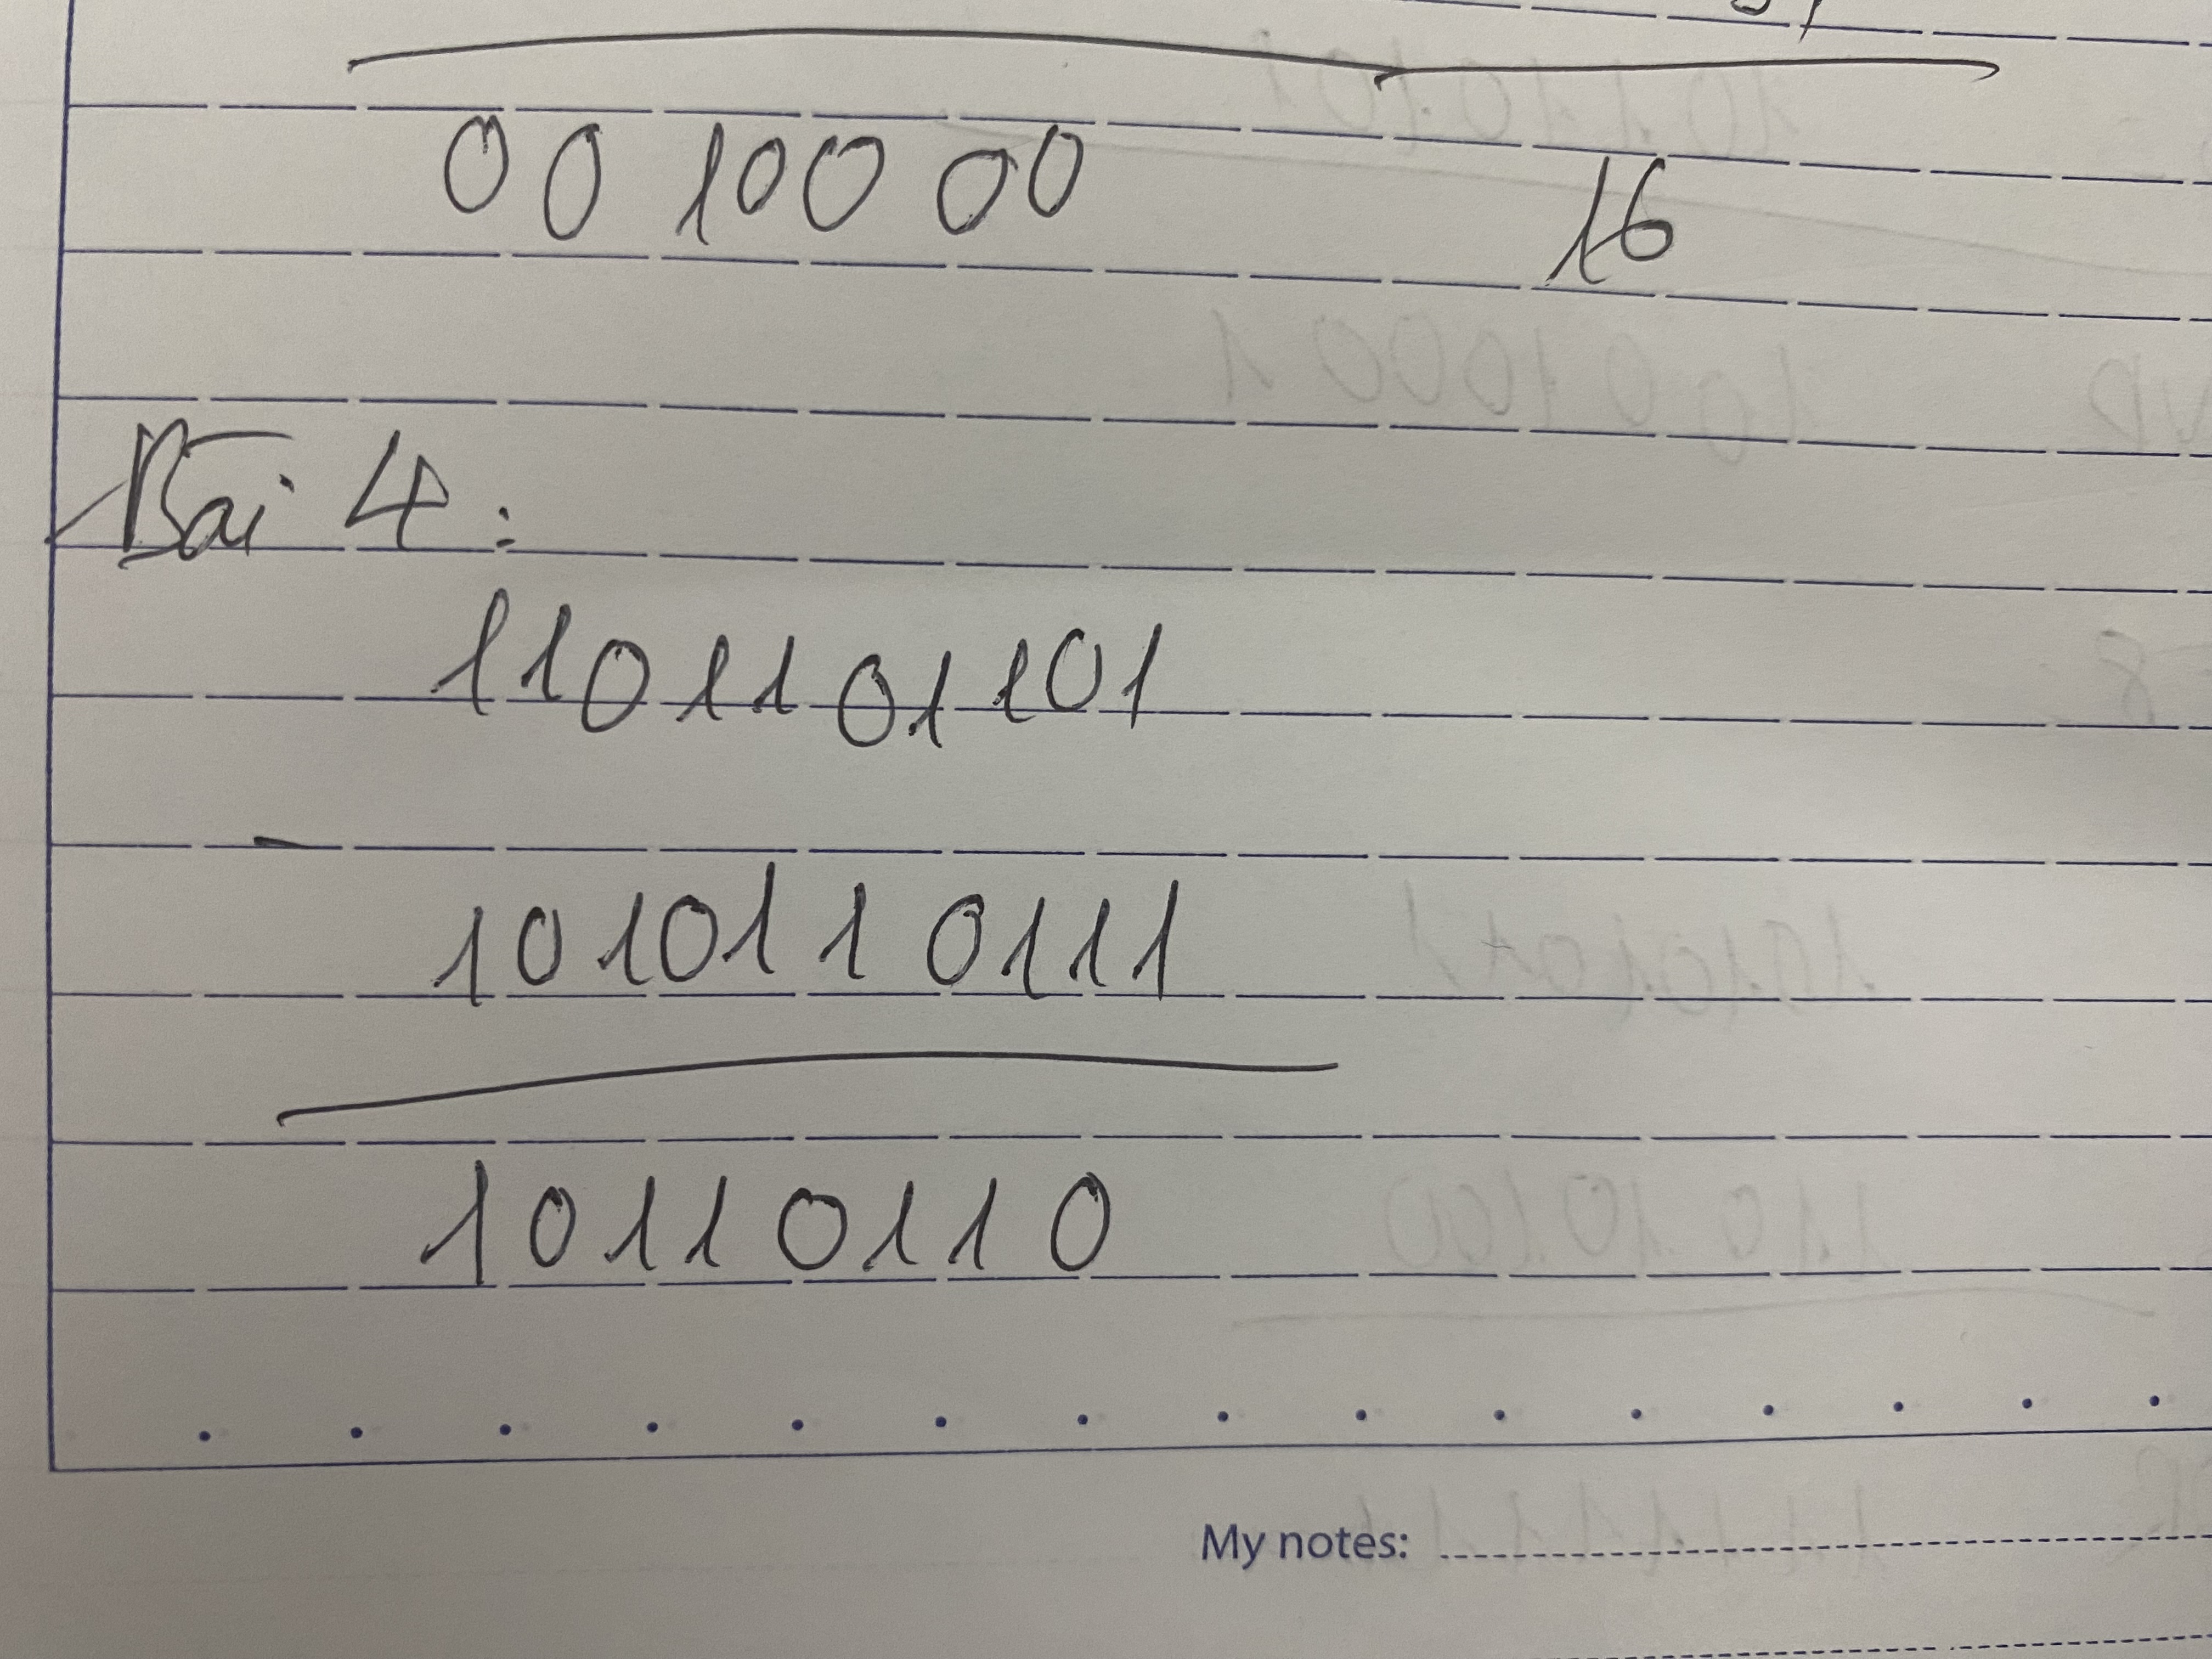 00 100 00 16
Bài 4:
1101101101
1010110111
10110110
My notes: